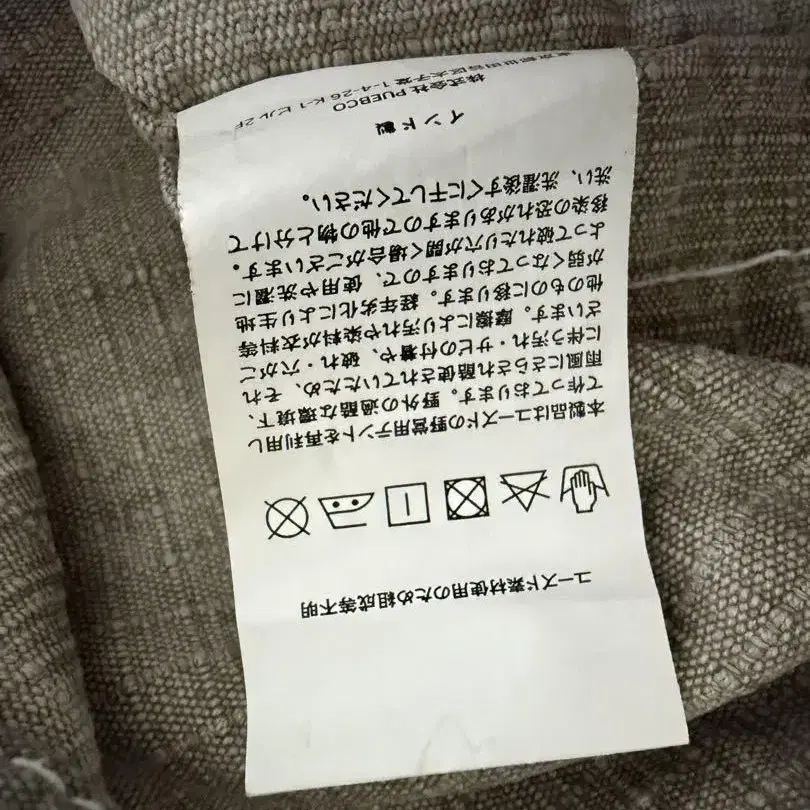 ユーズド素材使用のため組成等不明
本製品はユーズドの野営用テントを再利用し
て作っております。野外の過酷な環境下、
雨風にさらされ酷使されていたため、それ
に伴う汚れ・サビの付着や、破れ・穴がご
ざいます。摩擦により汚れや染料が衣料等
他のものに移ります。経年劣化により生地
が弱くなっておりますので、使用や洗濯に
よって破れたり穴が開く場合がございます。
移染の恐れがありますので他の物と分けて
洗い、洗濯後すぐに干してください。
インド製
株式会社 PUEBCO
東京都世田谷区太子堂 1-4-26 K-1 ビル 2F